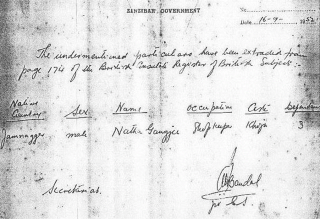 ZANZIBAR GOVERNMENT
To
Date 16-9- 1952
The undermentioned particulars have been extracted from
page 174 of the British Register of British Subjects:-
Native Country Sex Name Occupation Caste Dependants
Jamnagger male Natha Gangjee Shopkeeper Khoja 3
Secretariat.